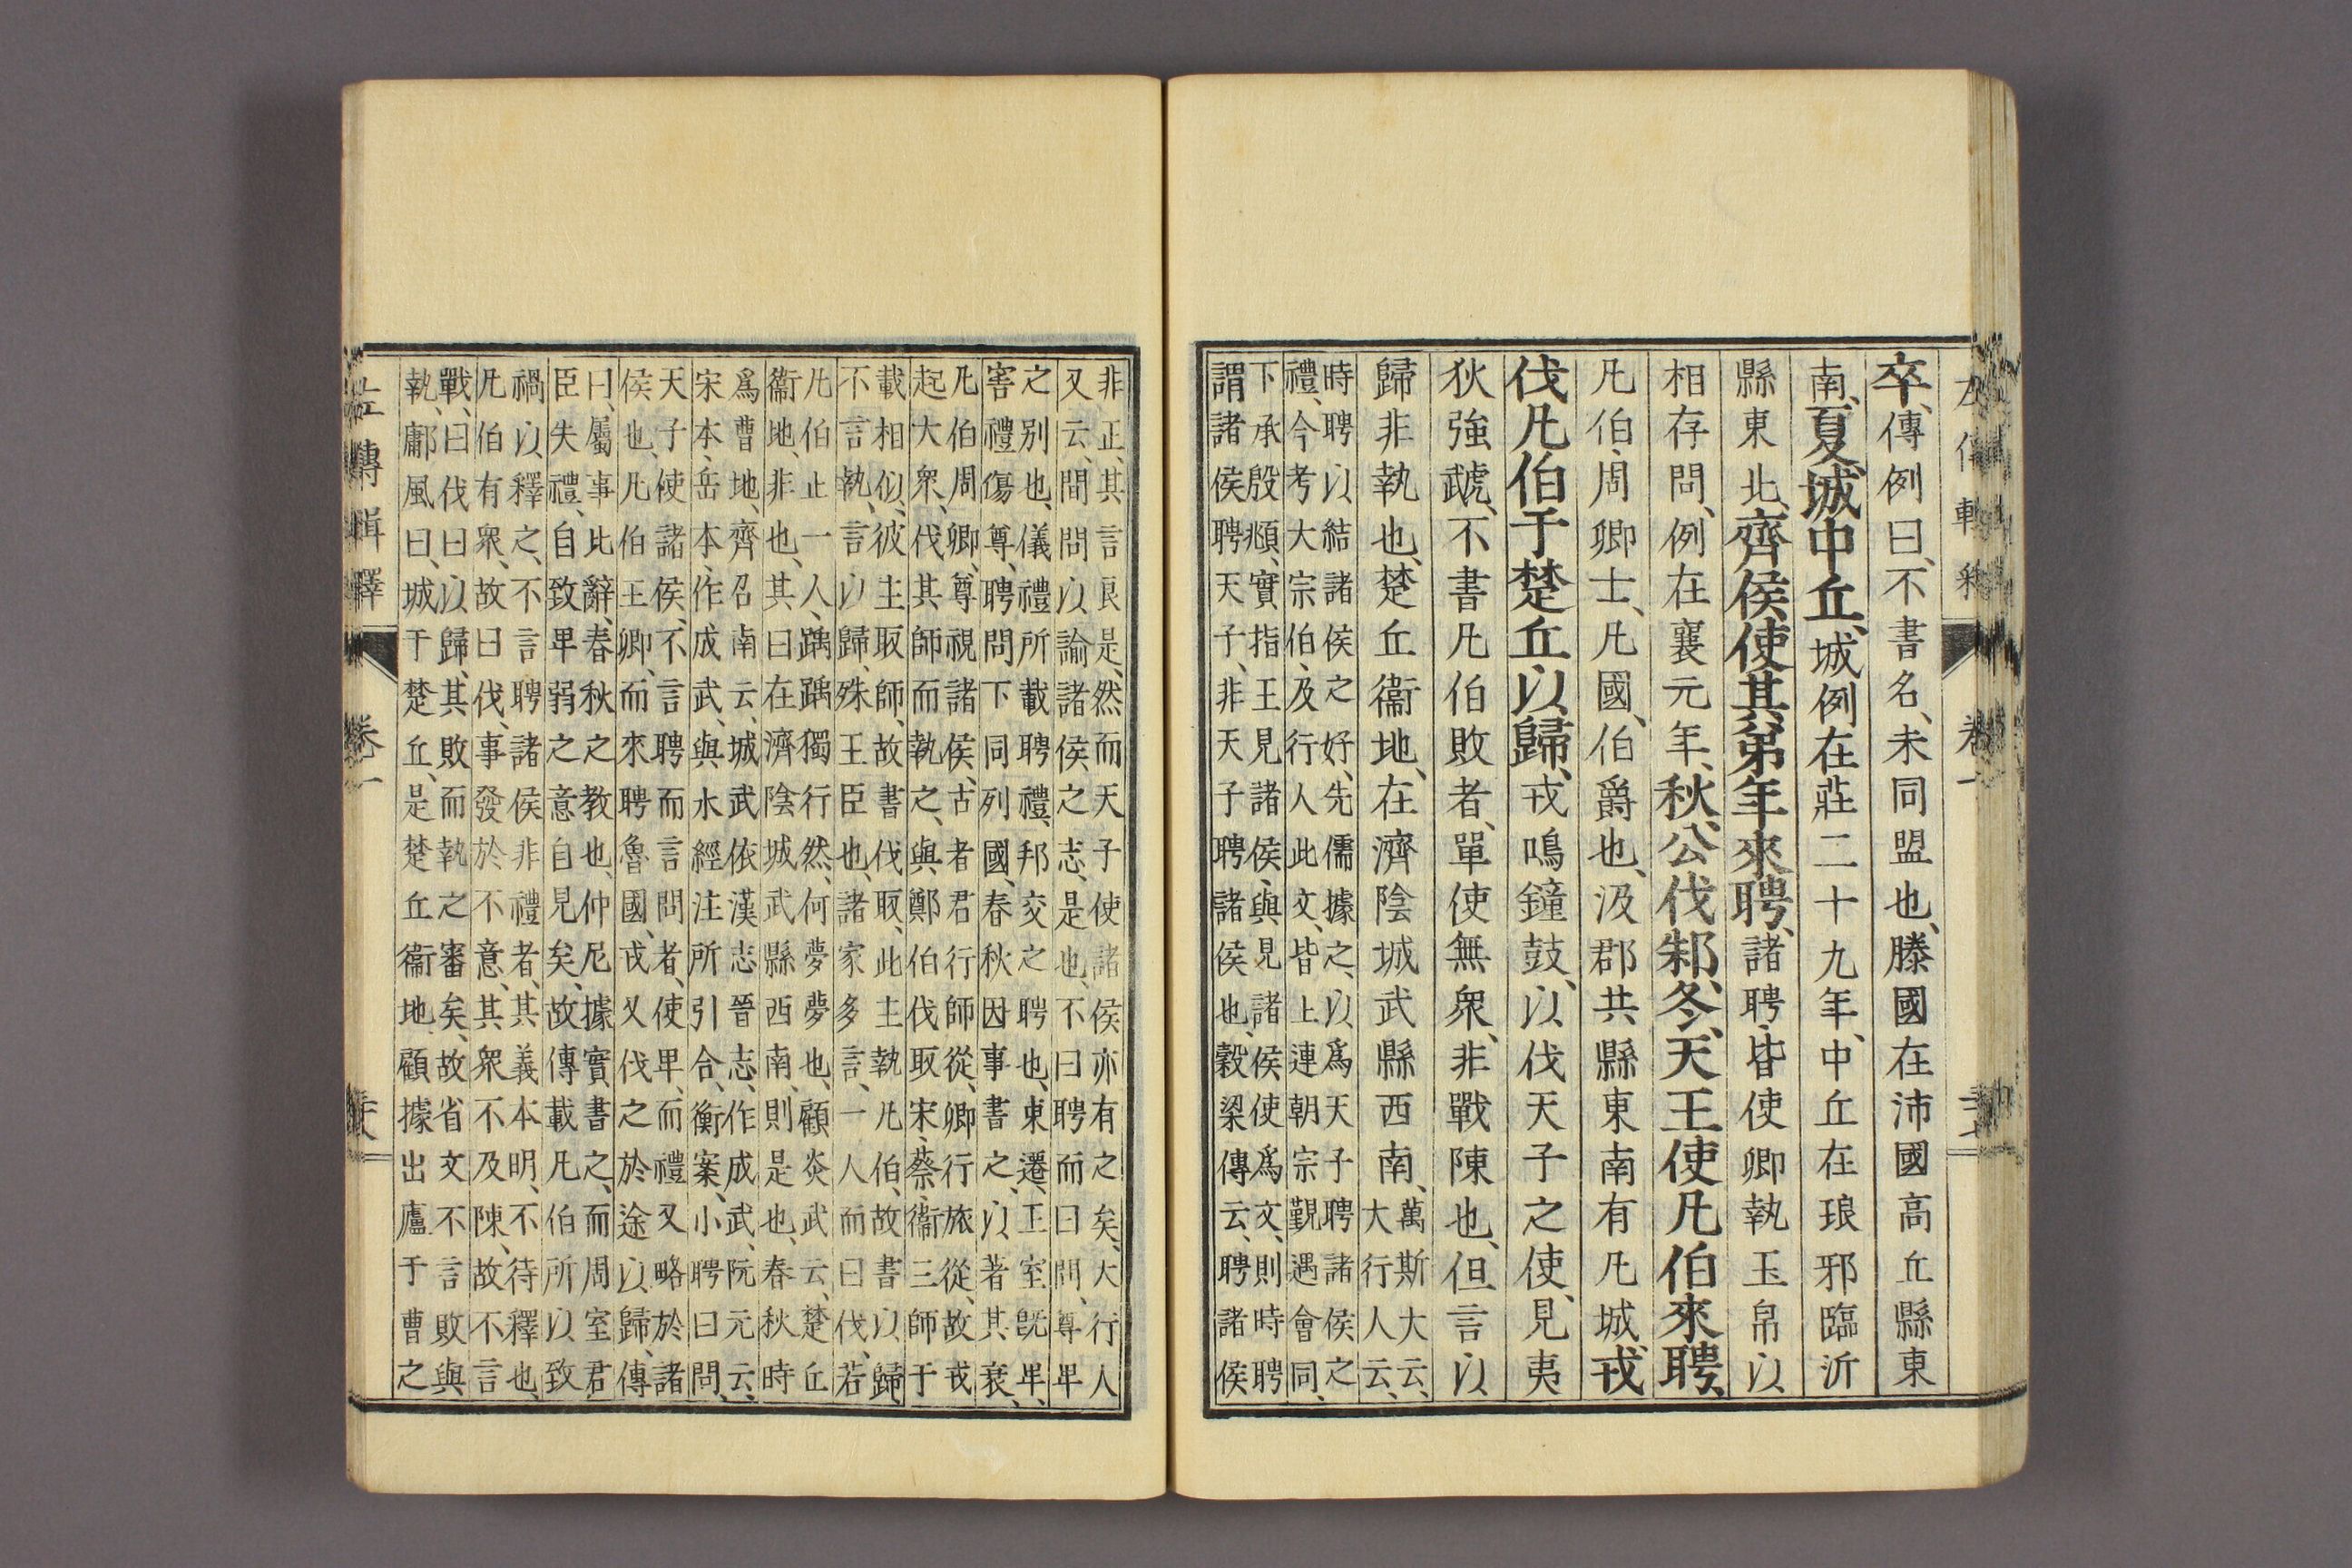 卒、傳例曰、不書名、未同盟也、滕國在沛國高丘縣東
南、夏、城中丘、城例在莊二十九年、中丘在琅邪臨沂
縣東北、齊侯使其弟年來聘、諸聘、皆使卿執玉帛以
相存問、例在襄元年、秋、公伐邾、冬、天王使凡伯來聘、
凡伯、周卿士、凡國、伯爵也、汲郡共縣東南有凡城、戎
伐凡伯于楚丘以歸、戎鳴鐘鼓、以伐天子之使、見夷
狄強虣、不書凡伯敗者、單使無衆、非戰陳也、但言以
歸非執也、楚丘衞地、在濟陰城武縣西南、萬斯大云、
大行人云、
時聘以結諸侯之好、先儒據之、以爲天子聘諸侯之
禮、今考大宗伯、及行人此文、皆上連朝宗覲遇會同、
下承殷頫、實指王見諸侯、與見諸侯使爲文、則時聘
謂諸侯聘天子、非天子聘諸侯也、穀梁傳云、聘諸侯
非正、其言良是、然而天子使諸侯亦有之矣、大行人
又云、間問以諭諸侯之志、是也、不曰聘而曰問、尊卑
之別也、儀禮所載聘禮、邦交之聘也、東遷、王室既卑、
害禮傷尊、聘問下同列國、春秋因事書之、以著其衰、
凡伯周卿、尊視諸侯、古者君行師從、卿行旅從、故戎
起大衆、伐其師而執之、與鄭伯伐取宋、蔡、衞三師于
載相似、彼主取師、故書伐取、此主執凡伯、故書以歸、
不言執、言以歸、殊王臣也、諸家多言、一人而曰伐、若
凡伯止一人、踽踽獨行然、何夢夢也、顧炎武云、楚丘
衞地、非也、其曰在濟陰城武縣西南、則是也、春秋時
爲曹地、齊召南云、城武依漢志晉志、作成武、阮元云、
宋本、岳本、作成武、與水經注所引合、衡案、小聘曰問、
天子使諸侯、不言聘而言問者、使卑、而禮又略於諸
侯也、凡伯王卿、而來聘魯國、戎又伐之於途以歸、傳
曰、屬事比辭、春秋之教也、仲尼據實書之、而周室君
臣失禮、自致卑弱之意自見矣、故傳載凡伯所以致
禍以釋之、不言聘諸侯非禮者、其義本明、不待釋也、
凡伯有衆、故曰伐、事發於不意、其衆不及陳、故不言
戰、曰伐曰以歸、其敗而執之審矣、故省文不言敗與
執、鄘風曰、城于楚丘、是楚丘衞地、顧據出廬于曹之
左傳輯釋
卷一